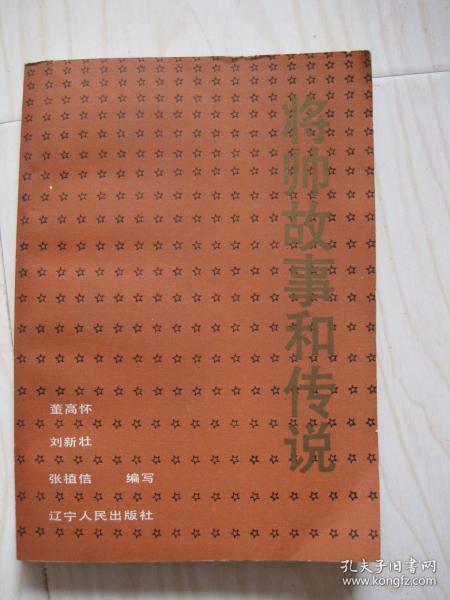 将帅故事和传说
董高怀
刘新壮
张植信 编写
辽宁人民出版社
孔夫子旧书网
www.kongfz.com